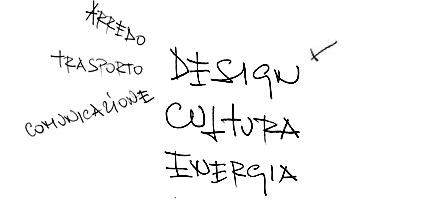 ARREDO
TRASPORTO
COMUNICAZIONE
DESIGN
CULTURA
ENERGIA